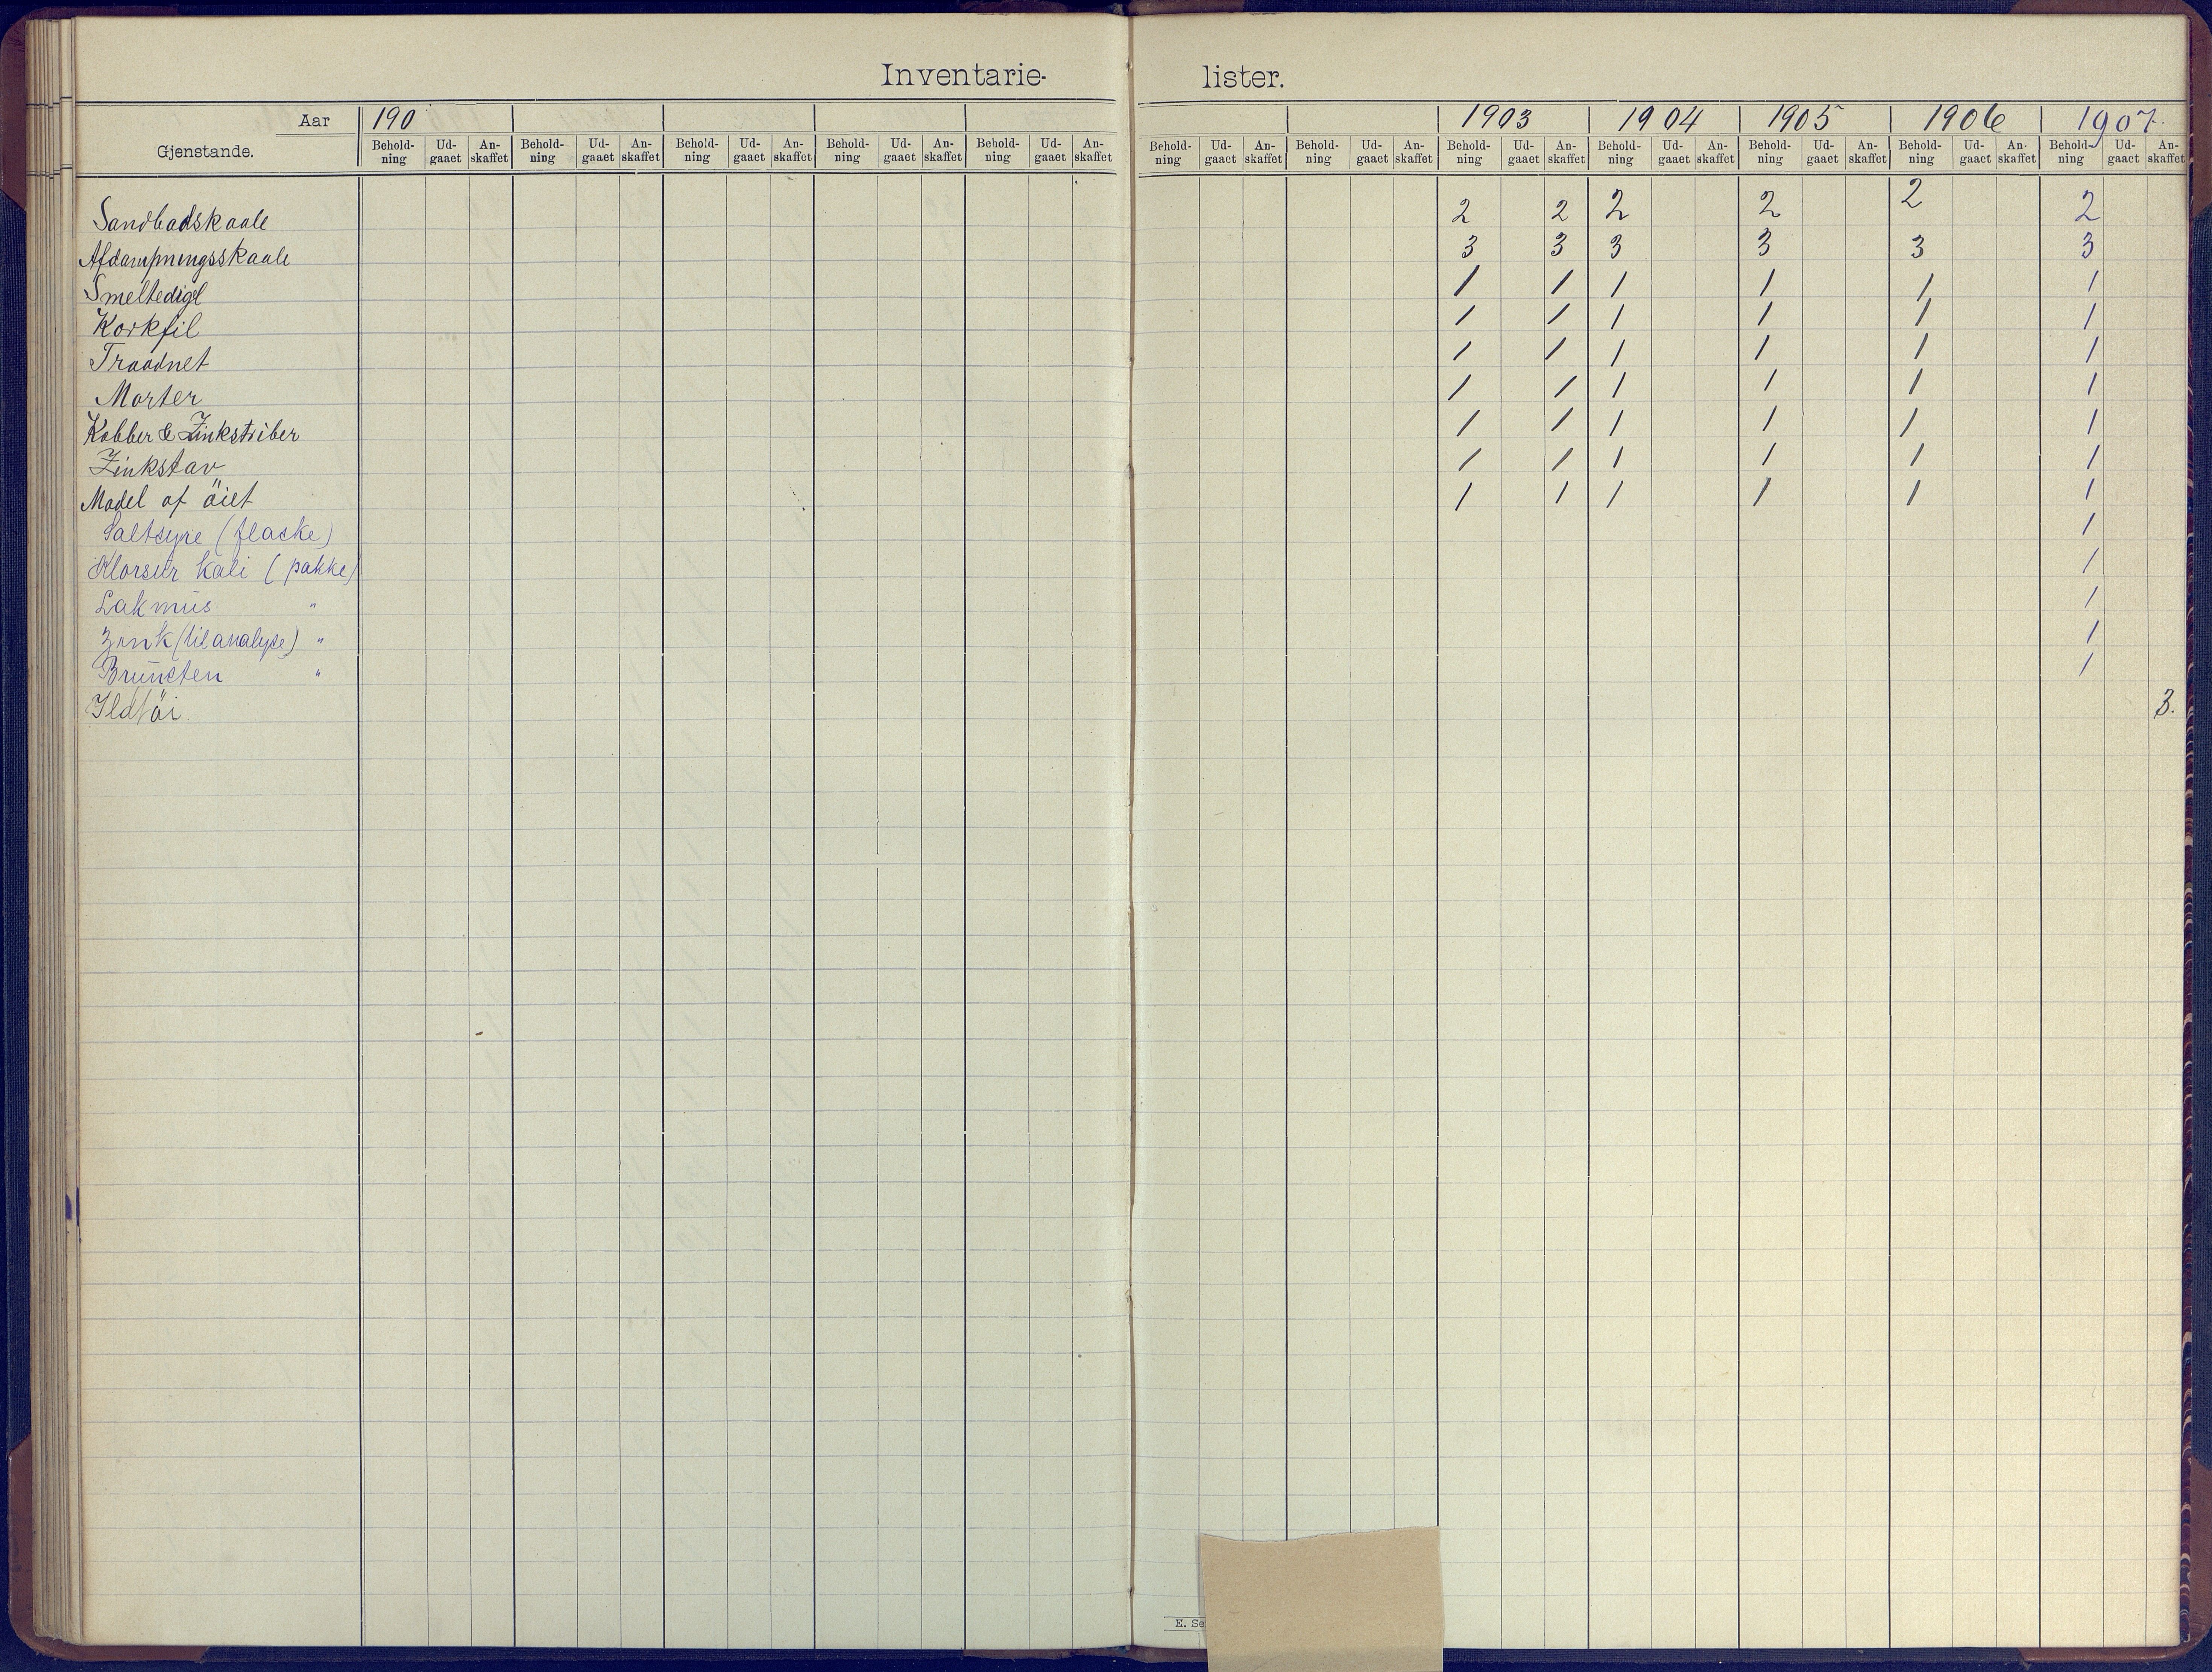 Inventarie-lister.
Aar 190 1903 1904 1905 1906 1907.
Gjenstande. Behold-ning Ud-gaaet An-skaffet Behold-ning Ud-gaaet An-skaffet Behold-ning Ud-gaaet An-skaffet Behold-ning Ud-gaaet An-skaffet Behold-ning Ud-gaaet An-skaffet Behold-ning Ud-gaaet An-skaffet Behold-ning Ud-gaaet An-skaffet Behold-ning Ud-gaaet An-skaffet Behold-ning Ud-gaaet An-skaffet Behold-ning Ud-gaaet An-skaffet Behold-ning Ud-gaaet An-skaffet Behold-ning Ud-gaaet An-skaffet
Sandbadskaale 2 2 2 2 2 2
Afdampningsskaale 3 3 3 3 3 3
Smeltedigel 1 1 1 1 1 1
Korkfil 1 1 1 1 1 1
Traadnet 1 1 1 1 1 1
Morter 1 1 1 1 1 1
Kobber & Zinkstriber 1 1 1 1 1 1
Zinkstav 1 1 1 1 1 1
Model af öiet 1 1 1 1 1 1
Saltsyre (flaske) 1
Klorsur kali (pakke) 1
Lakmus " 1
Zink (til analyse) " 1
Brunsten " 1
Ildtöi. 3.
E. Se